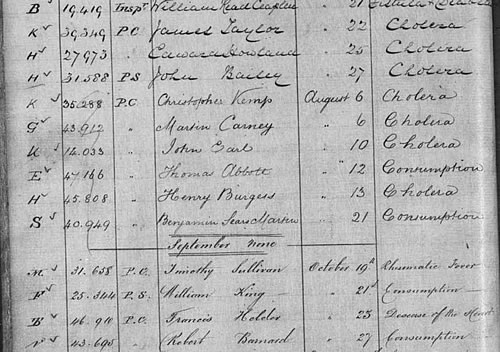 B 19.419 Insp 21
K 39,349 P.C James Taylor 22 Cholera
H 27,973 " Edward Howland " 25 Cholera
H 31.588 P.S John Bailey " 27 Cholera
K 35.288 P.C. Christopher Kemp August 6 Cholera
G 43,912 " Martin Carney " 6 Cholera
14.033 " John Earl " 10 Cholera
E 47.166 " Thomas Abbott " 12 Consumption
H 45.808 " Henry Burgess " 13 Cholera
S 40.949 " Benjamin Sears Martin " 21 Consumption
September None
M 31.658 P.C. Timothy Sullivan October 19th Rheumatic Fever
F 25.344 P.S. William King " 21st Consumption
B 46.910 P.C. Francis Holder " 23 Disease of the Heart
43.695 " Robert Barnard " 27 Consumption